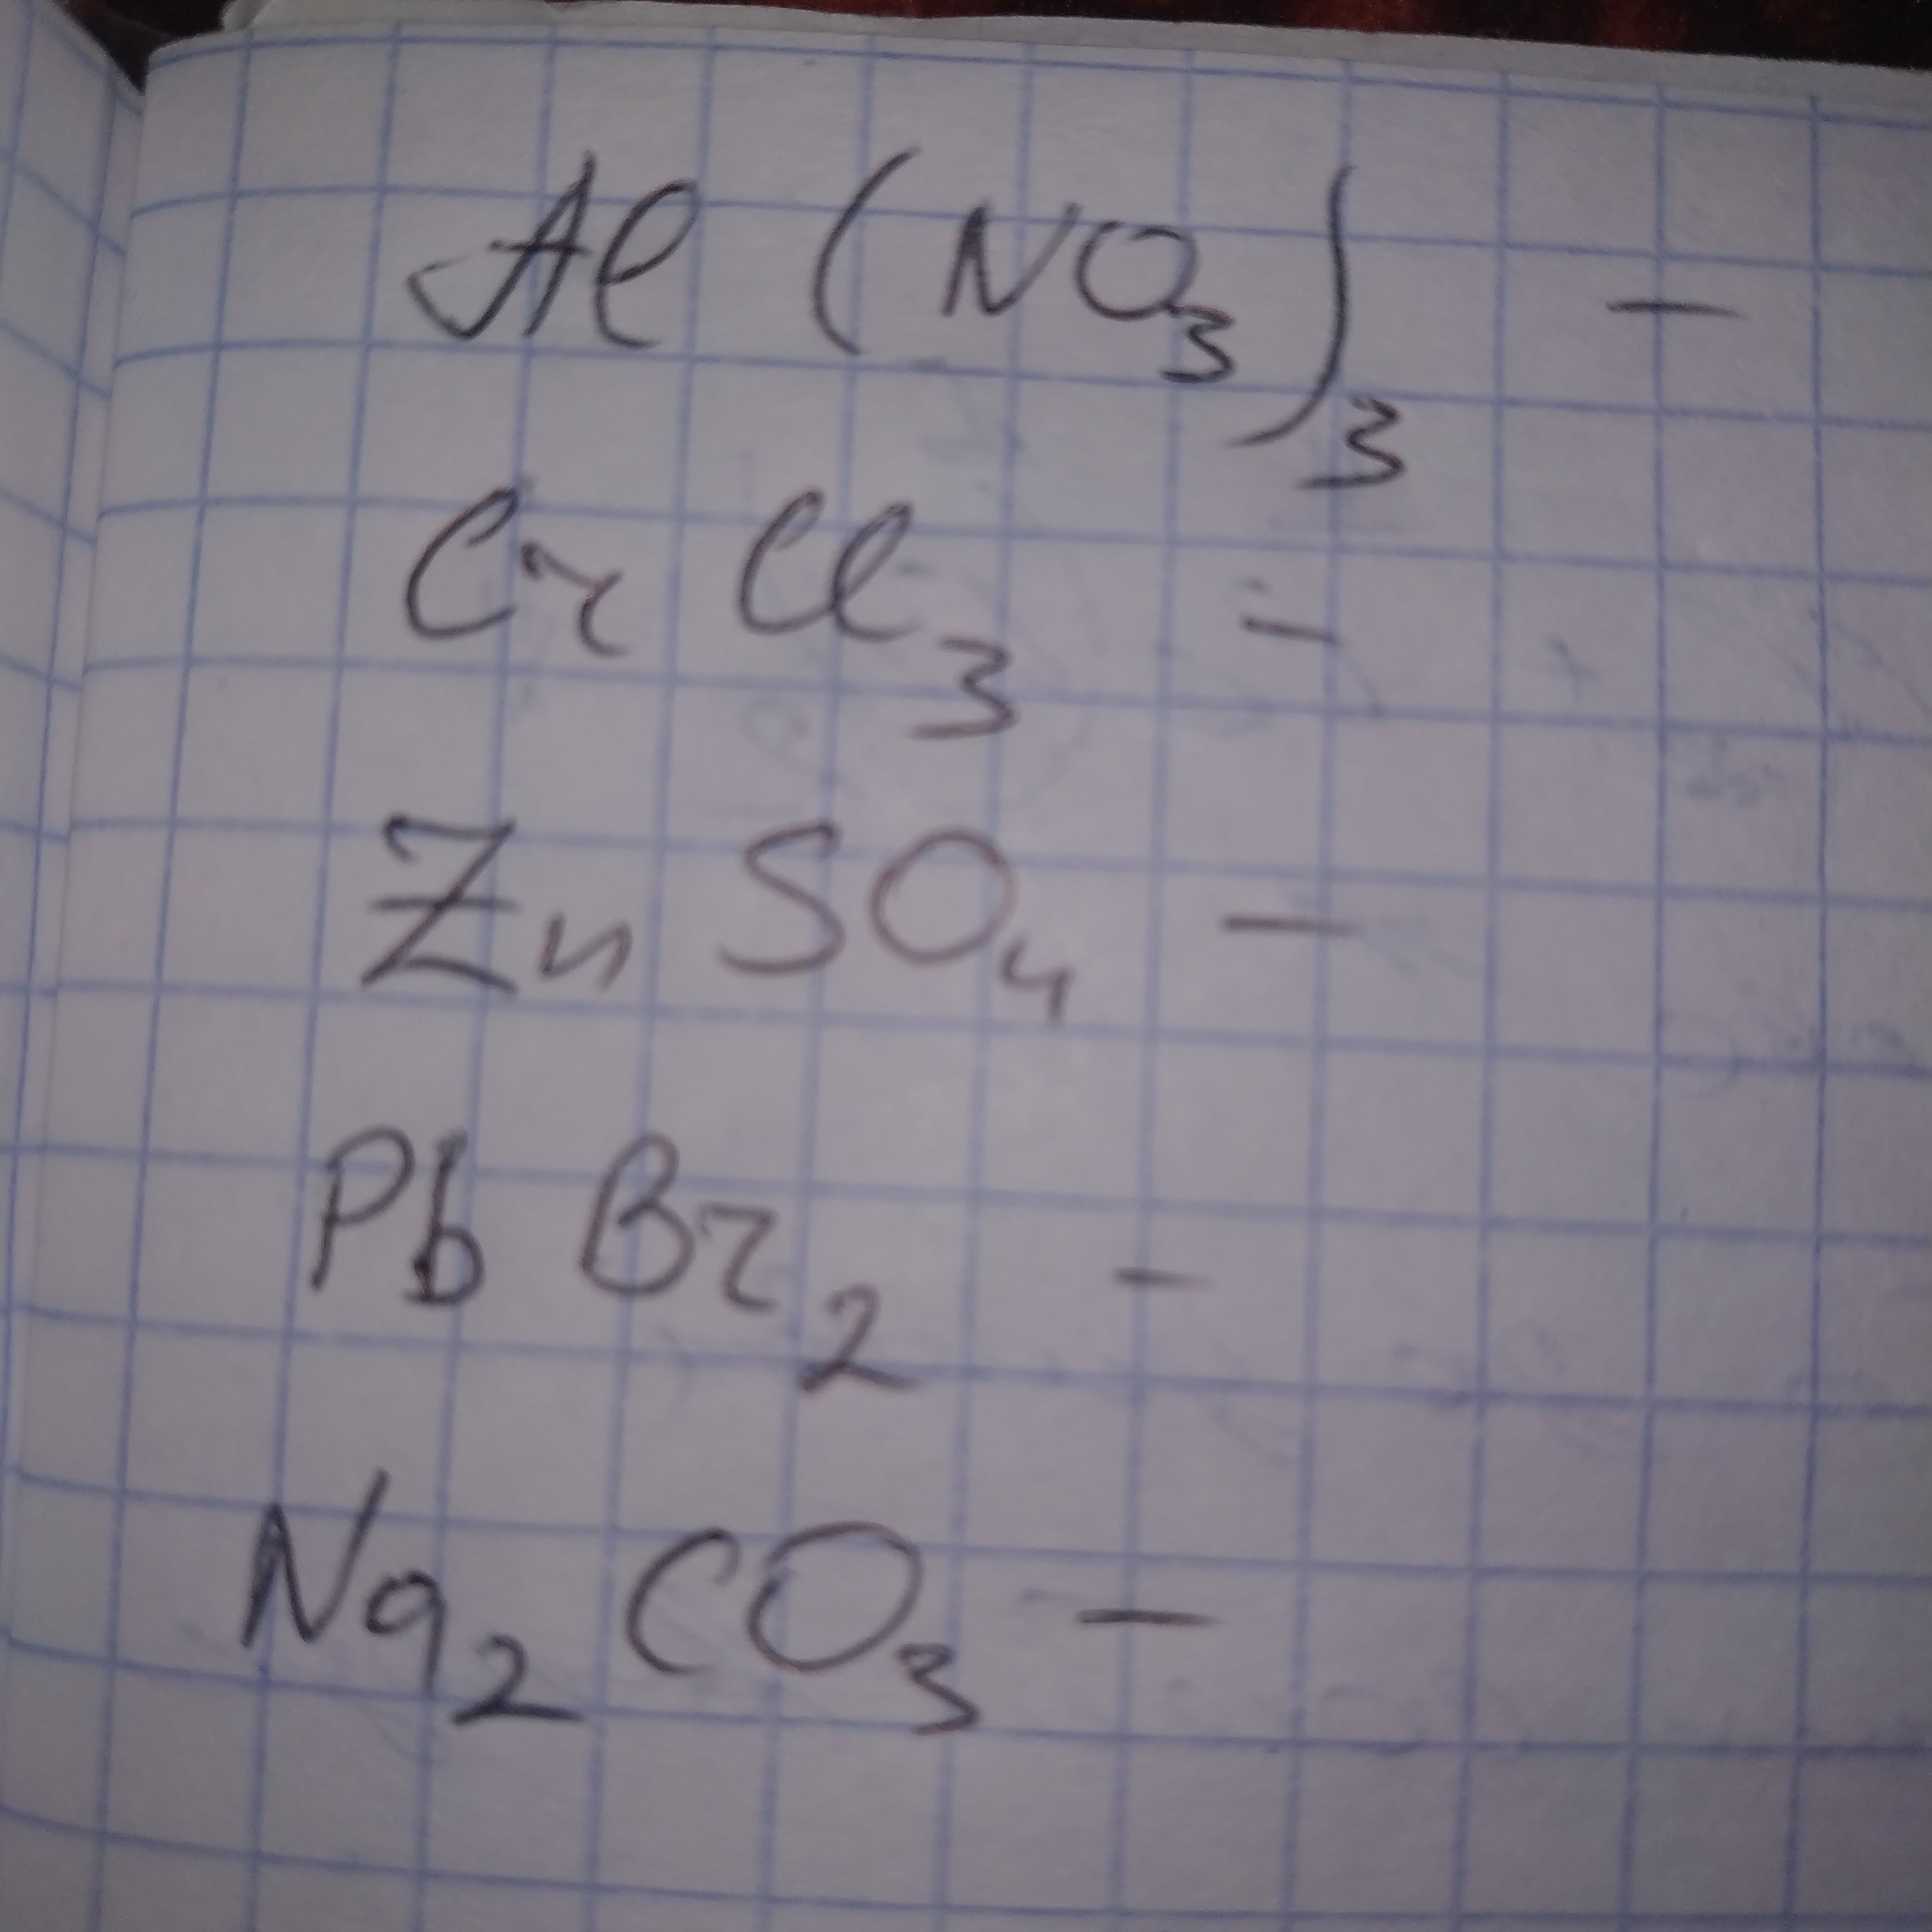 Al (NO₃)₃ –
CrCl₃ –
ZnSO₄ –
PbBr₂ –
Na₂CO₃ –